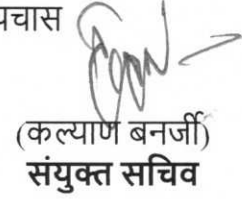 पचास
(कल्याण बनर्जी)
संयुक्त सचिव